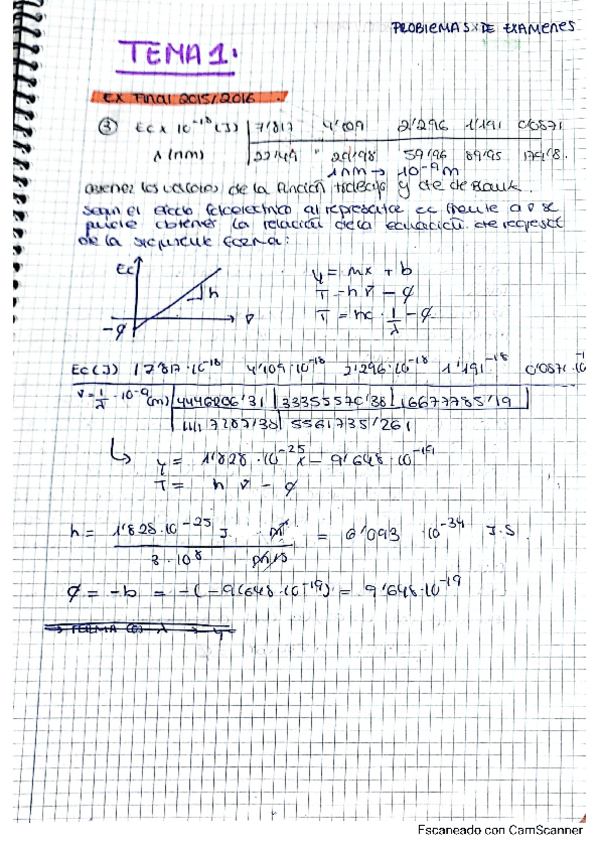 PROBLEMAS DE EXAMENES
TEMA 1.
EX Final 2015/2016
③ Ec x 10⁻¹⁸ (J) | 7'817 4'009 2'296 1'191 0'0871
λ (nm) | 22'49 29'98 59'96 89'95 179'8.
1nm → 10⁻⁹m
los valores de la función trabajo y cte de
Según el efecto fotoelectrico al representar Ec frente a ν se
puede obtener la relación de la ecuación de
de la siguiente forma:
Ec
h
-φ
ν
y = mx + b
T = hν - φ
T = hc · 1/λ - φ
Ec (J) | 7'817·10⁻¹⁸ 4'109·10⁻¹⁸ 2'296·10⁻¹⁸ 1'191⁻¹⁸ 0'0871·10
ν = 1/λ · 10⁻⁹ (m) | 4446206'31 | 33355570'38 | 16677785'19 |
11117287'38 | 5561735'261
↳ y = 1'828·10⁻²⁵x - 9'648·10⁻¹⁹
T = h ν - φ
h = 1'828·10⁻²⁵ J · m / 3·10⁸ m/s = 6'093 10⁻³⁴ J.S.
φ = -b = -(-9'648·10⁻¹⁹) = 9'648·10⁻¹⁹
Escaneado con CamScanner